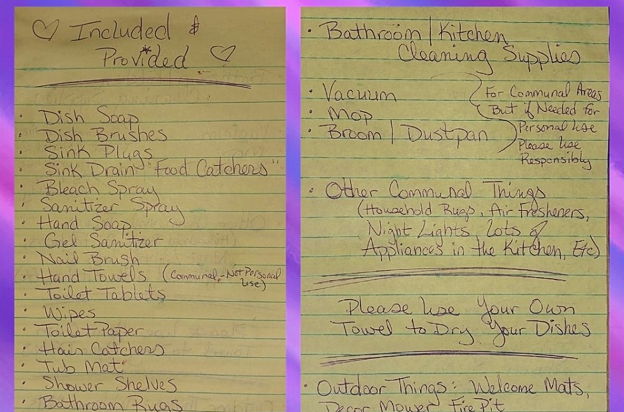 ♡ Included &
Provided ♡
• Dish Soap
• Dish Brushes
• Sink Plugs
• Sink Drain "Food Catchers"
• Bleach Spray
• Sanitizer Spray
• Hand Soap
• Gel Sanitizer
• Nail Brush
• Hand Towels (Communal, - Not Personal Use)
• Toilet Tablets
• Wipes
• Toilet Paper
• Hair Catchers
• Tub Mat
• Shower Shelves
• Bathroom Rugs
• Bathroom | Kitchen
Cleaning Supplies
• Vacuum
• Mop
• Broom | Dustpan
For Communal Areas
But if Needed for
Personal Use
Please Use
Responsibly
• Other Communal Things
(Household Rugs, Air Fresheners,
Night Lights, Lots of
Appliances in the Kitchen, Etc)
Please Use Your Own
Towel to Dry Your Dishes
• Outdoor Things: Welcome Mats,
Decor, Mower, Fire Pit